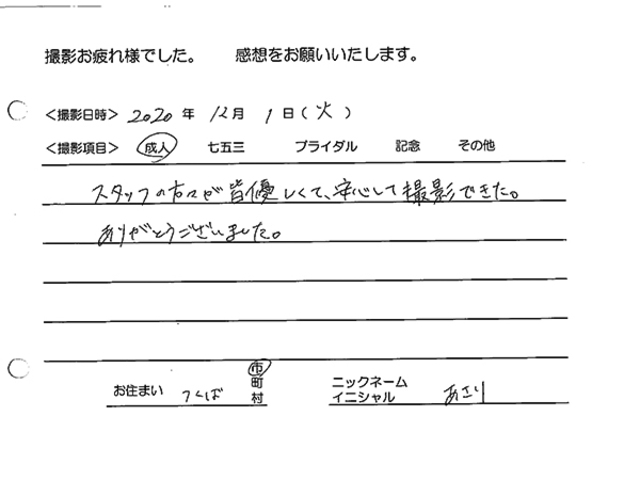 撮影お疲れ様でした。 感想をお願いいたします。
<撮影日時> 2020 年 12 月 1 日 (火)
<撮影項目> 成人 七五三 ブライダル 記念 その他
スタッフの方々が皆優しくて、安心して撮影できた。
ありがとうございました。
お住まい つくば 市 町 村 ニックネーム イニシャル あさり